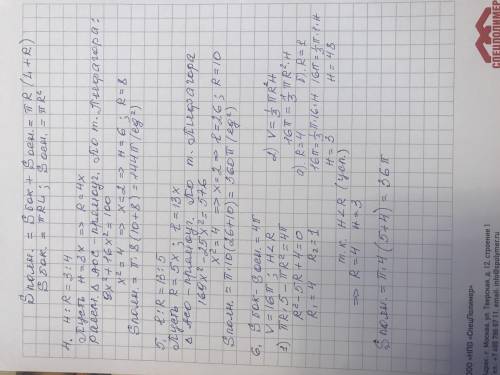 Sполн. = Sбок + Sосн. = πR(L+R)
Sбок. = πRL; Sосн. = πR²
4. H:R = 3:4
Пусть H = 3x => R = 4x
Рассм. Δ АОС - прямоуг. По т. Пифагора:
9x² + 16x² = 100
x² = 4 => x = 2 => H = 6; R = 8
Sполн = π·8(10+8) = 144π (ед²)
5. ℓ:R = 13:5
Пусть R = 5x; ℓ = 13x
Δ АСО - прямоуг. По т. Пифагора
169x² - 25x² = 576
x² = 4 => x = 2 => ℓ = 26; R = 10
Sполн = π·10(26+10) = 360π (ед²)
6. Sбок - Sосн. = 4π
V = 16π; H<R
1) πR·5 - πR² = 4π
R² - 5R + 4 = 0
R₁ = 4 R₂ = 1
2) V = ⅓πR²H
16π = ⅓πR²·H
а) R = 4
16π = ⅓π·16·H
H = 3
б) R = 1
16π = ⅓π·1·H
H = 48
т.к. H<R (усл.)
=> R = 4 H = 3
Sполн. = π·4(5+4) = 36π
СПЕЦПОЛИМЕР
ООО «НПО «СпецПолимер»
Адрес: г. Москва, ул. Тверская, д. 12, строение 1